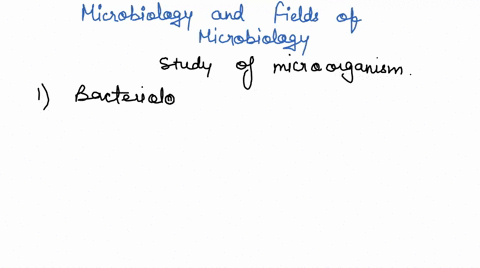 Microbiology and fields of
Microbiology
Study of microorganism.
1) Bacteriolo